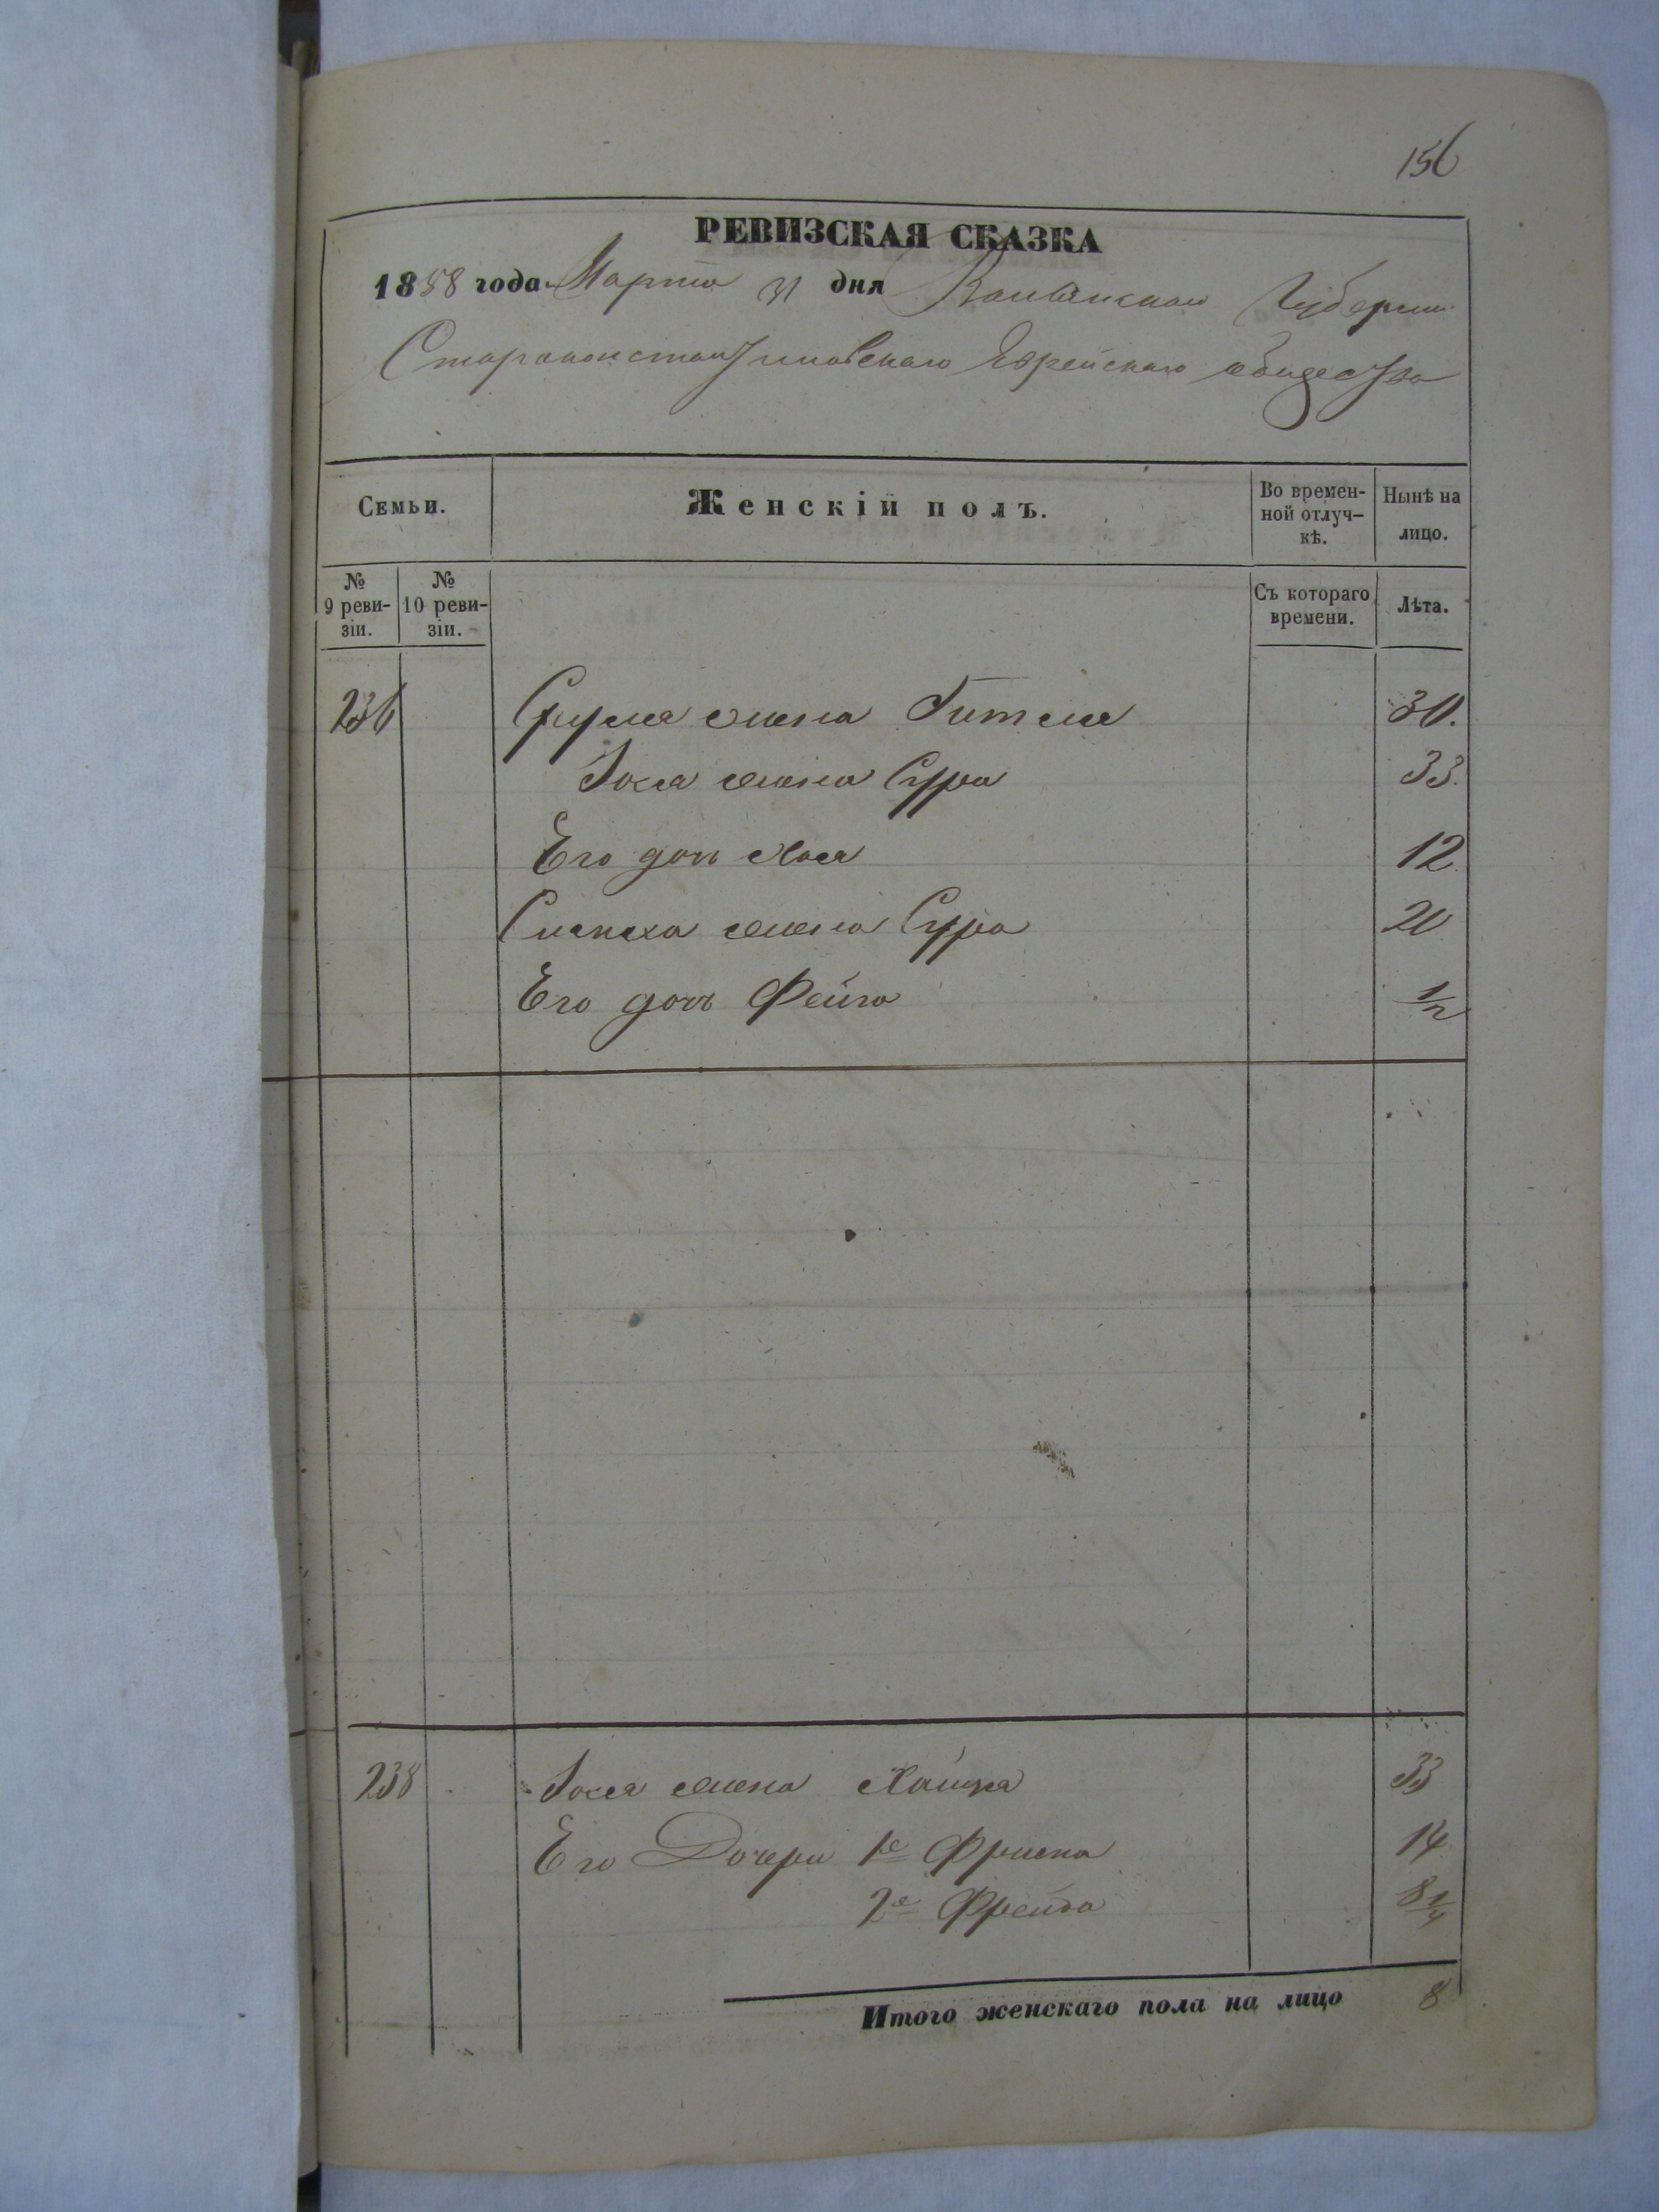 156
РЕВИЗСКАЯ СКАЗКА
1858 года Марта 31 дня Волынской Губернии
Староконстантиновскаго Еврейскаго общества
Семьи. Женскій полъ. Во времен-ной отлуч-кѣ. Нынѣ на лицо.
№ 9 реви-зіи. № 10 реви-зіи. Съ котораго времени. Лѣта.
236 Сруля жена Гитля 30.
Іося жена Сура 33.
Его дочь Хая 12
жена Сура 20
Его дочь Фейга 1/2
238 Іося жена Хайця 33
Его Дочери 1е Фрима 14
2е Фрейда 8 1/4
Итого женскаго пола на лицо 8